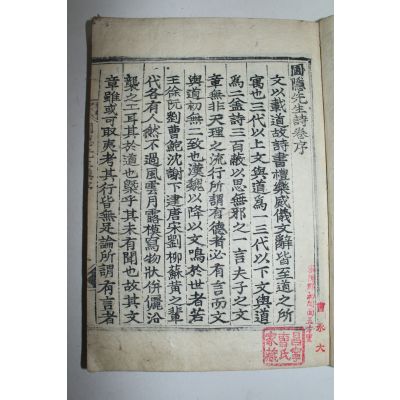 圃隱先生詩卷序
文以載道故詩書禮樂威儀文辭皆至道之所
寓也三代以上文與道爲一三代以下文與道
爲二盖詩三百蔽以思無邪之一言夫子之文
章無非天理之流行所謂有德者必有言而文
與道初無二致也漢魏以降以文鳴於世者若
王徐阮劉曹鮑沈謝下逮唐宋劉柳蘇黃之輩
代各有人然不過風雲月露模寫物狀併儷沿
襲之工耳其於道也槩乎其未有聞也故其文
章雖或可取夷考其行皆無足論所謂有言者
曺永大
昌寧
曺氏
家藏